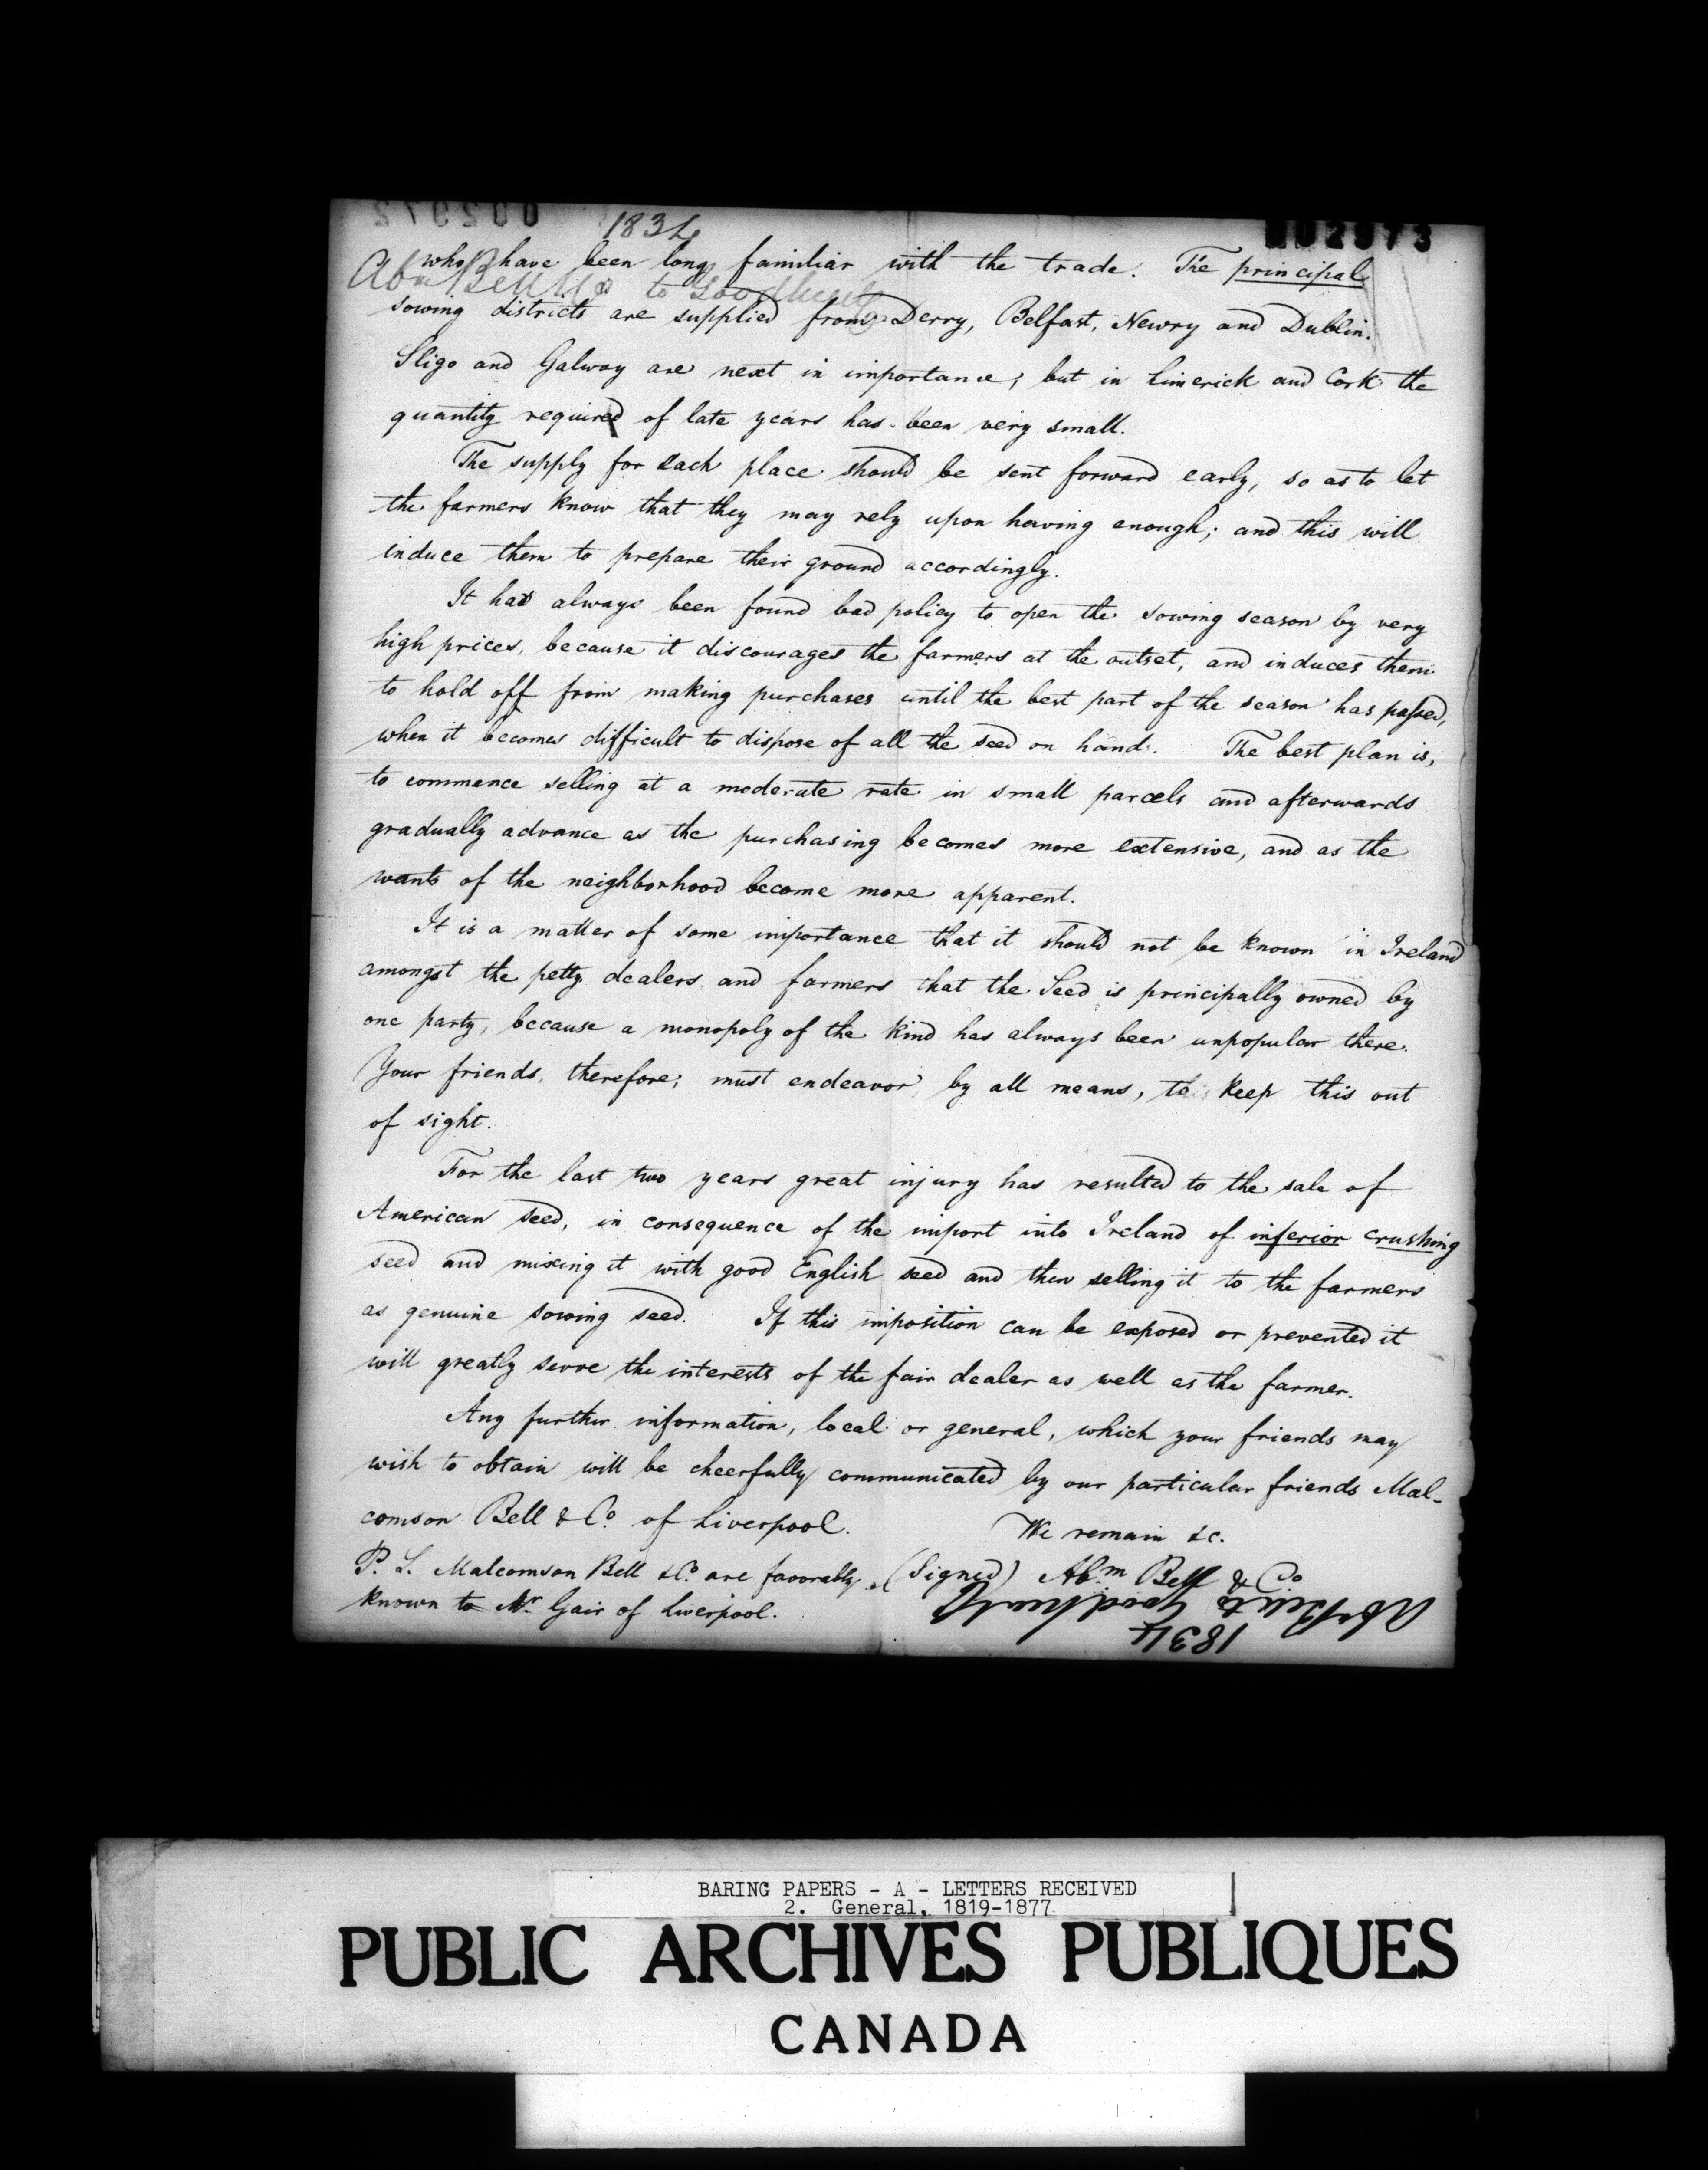 002972
1834
002973
Abm Bell & Co to Goodhue
who have been long familiar with the trade. The principal
sowing districts are supplied from Derry, Belfast, Newry and Dublin.
Sligo and Galway are next in importance; but in Limerick and Cork the
quantity required of late years has been very small.
The supply for each place should be sent forward early, so as to let
the farmers know that they may rely upon having enough; and this will
induce them to prepare their ground accordingly.
It has always been found bad policy to open the sowing season by very
high prices, because it discourages the farmers at the outset, and induces them
to hold off from making purchases until the best part of the season has passed,
when it becomes difficult to dispose of all the seed on hand. The best plan is,
to commence selling at a moderate rate in small parcels and afterwards
gradually advance as the purchasing becomes more extensive, and as the
wants of the neighborhood become more apparent.
It is a matter of some importance that it should not be known in Ireland
amongst the petty dealers and farmers that the Seed is principally owned by
one party, because a monopoly of the kind has always been unpopular there.
Your friends, therefore, must endeavor, by all means, to keep this out
of sight.
For the last two years great injury has resulted to the sale of
American seed, in consequence of the import into Ireland of inferior crushing
seed and mixing it with good English seed and then selling it to the farmers
as genuine sowing seed. If this imposition can be exposed or prevented it
will greatly serve the interests of the fair dealer as well as the farmer.
Any further information, local or general, which your friends may
wish to obtain will be cheerfully communicated by our particular friends Mal-
comson Bell & Co. of Liverpool. We remain &c.
(Signed) Abm. Bell & Co
P. S. Malcomson Bell & Co. are favorably
known to Mr. Gair of Liverpool.
1834
BARING PAPERS - A - LETTERS RECEIVED
2. General, 1819-1877
PUBLIC ARCHIVES PUBLIQUES
CANADA